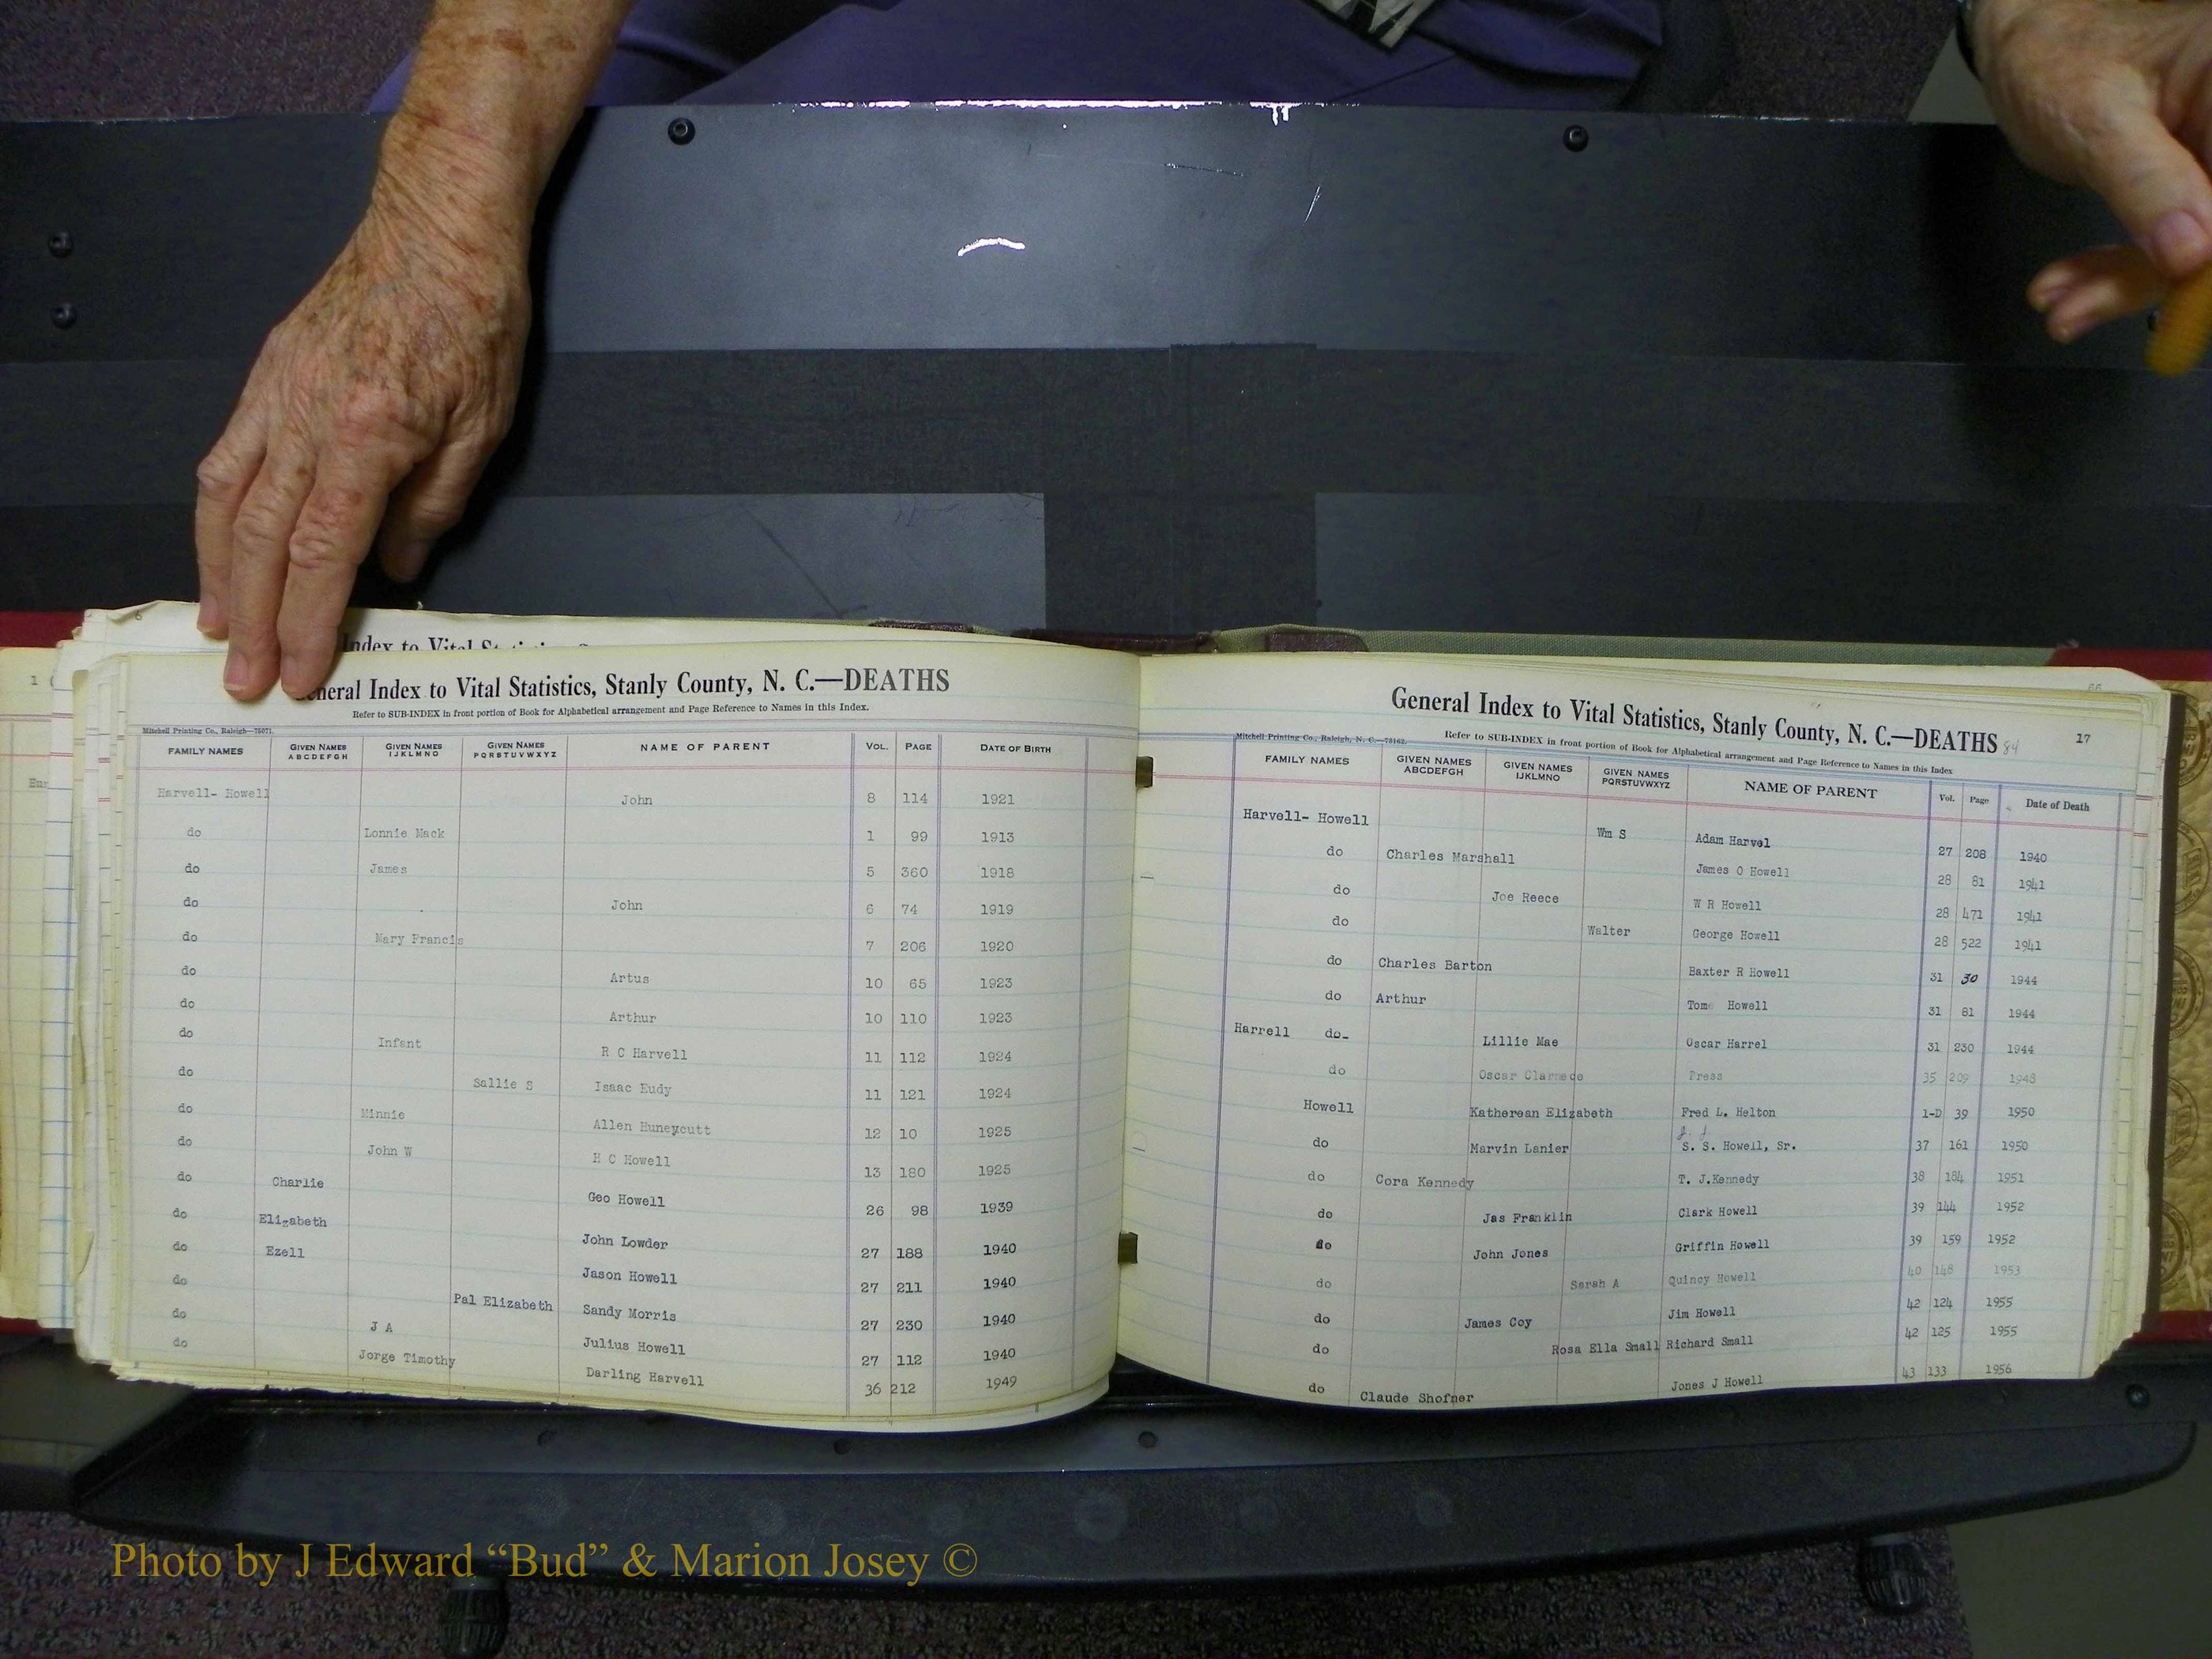 Index to Vital
General Index to Vital Statistics, Stanly County, N. C.—DEATHS
Refer to SUB-INDEX in front portion of Book for Alphabetical arrangement and Page Reference to Names in this Index.
Mitchell Printing Co., Raleigh—75071.
FAMILY NAMES GIVEN NAMES ABCDEFGH GIVEN NAMES IJKLMNO GIVEN NAMES PQRSTUVWXYZ NAME OF PARENT VOL. PAGE DATE OF BIRTH
Harvell- Howell John 8 114 1921
do Lonnie Mack 1 99 1913
do James 5 360 1918
do John 6 74 1919
do Mary Francis 7 206 1920
do Artus 10 65 1923
do Arthur 10 110 1923
do Infant R C Harvell 11 112 1924
do Sallie S Isaac Eudy 11 121 1924
do Minnie Allen Huneycutt 12 10 1925
do John W H C Howell 13 180 1925
do Charlie Geo Howell 26 98 1939
do Elizabeth John Lowder 27 188 1940
do Ezell Jason Howell 27 211 1940
do Pal Elizabeth Sandy Morris 27 230 1940
do J A Julius Howell 27 112 1940
do Jorge Timothy Darling Harvell 36 212 1949
General Index to Vital Statistics, Stanly County, N. C.—DEATHS 84 17
Refer to SUB-INDEX in front portion of Book for Alphabetical arrangement and Page Reference to Names in this Index
Mitchell Printing Co., Raleigh, N. C.—78162.
FAMILY NAMES GIVEN NAMES ABCDEFGH GIVEN NAMES IJKLMNO GIVEN NAMES PQRSTUVWXYZ NAME OF PARENT Vol. Page Date of Death
Harvell- Howell Wm S Adam Harvel 27 208 1940
do Charles Marshall James O Howell 28 81 1941
do Joe Reece W R Howell 28 471 1941
do Walter George Howell 28 522 1941
do Charles Barton Baxter R Howell 31 30 1944
do Arthur Tom Howell 31 81 1944
Harrell do- Lillie Mae Oscar Harrel 31 230 1944
do Oscar Press 35 209 1948
Howell Katherean Elizabeth Fred L. Helton 1-D 39 1950
do Marvin Lanier S. S. Howell, Sr. 37 161 1950
do Cora Kennedy T. J.Kennedy 38 184 1951
do Jas Franklin Clark Howell 39 144 1952
do John Jones Griffin Howell 39 159 1952
do Sarah A Quincy Howell 40 148 1953
do James Coy Jim Howell 42 124 1955
do Rosa Ella Small Richard Small 42 125 1955
do Claude Shofner Jones J Howell 43 133 1956
Photo by J Edward “Bud” & Marion Josey ©